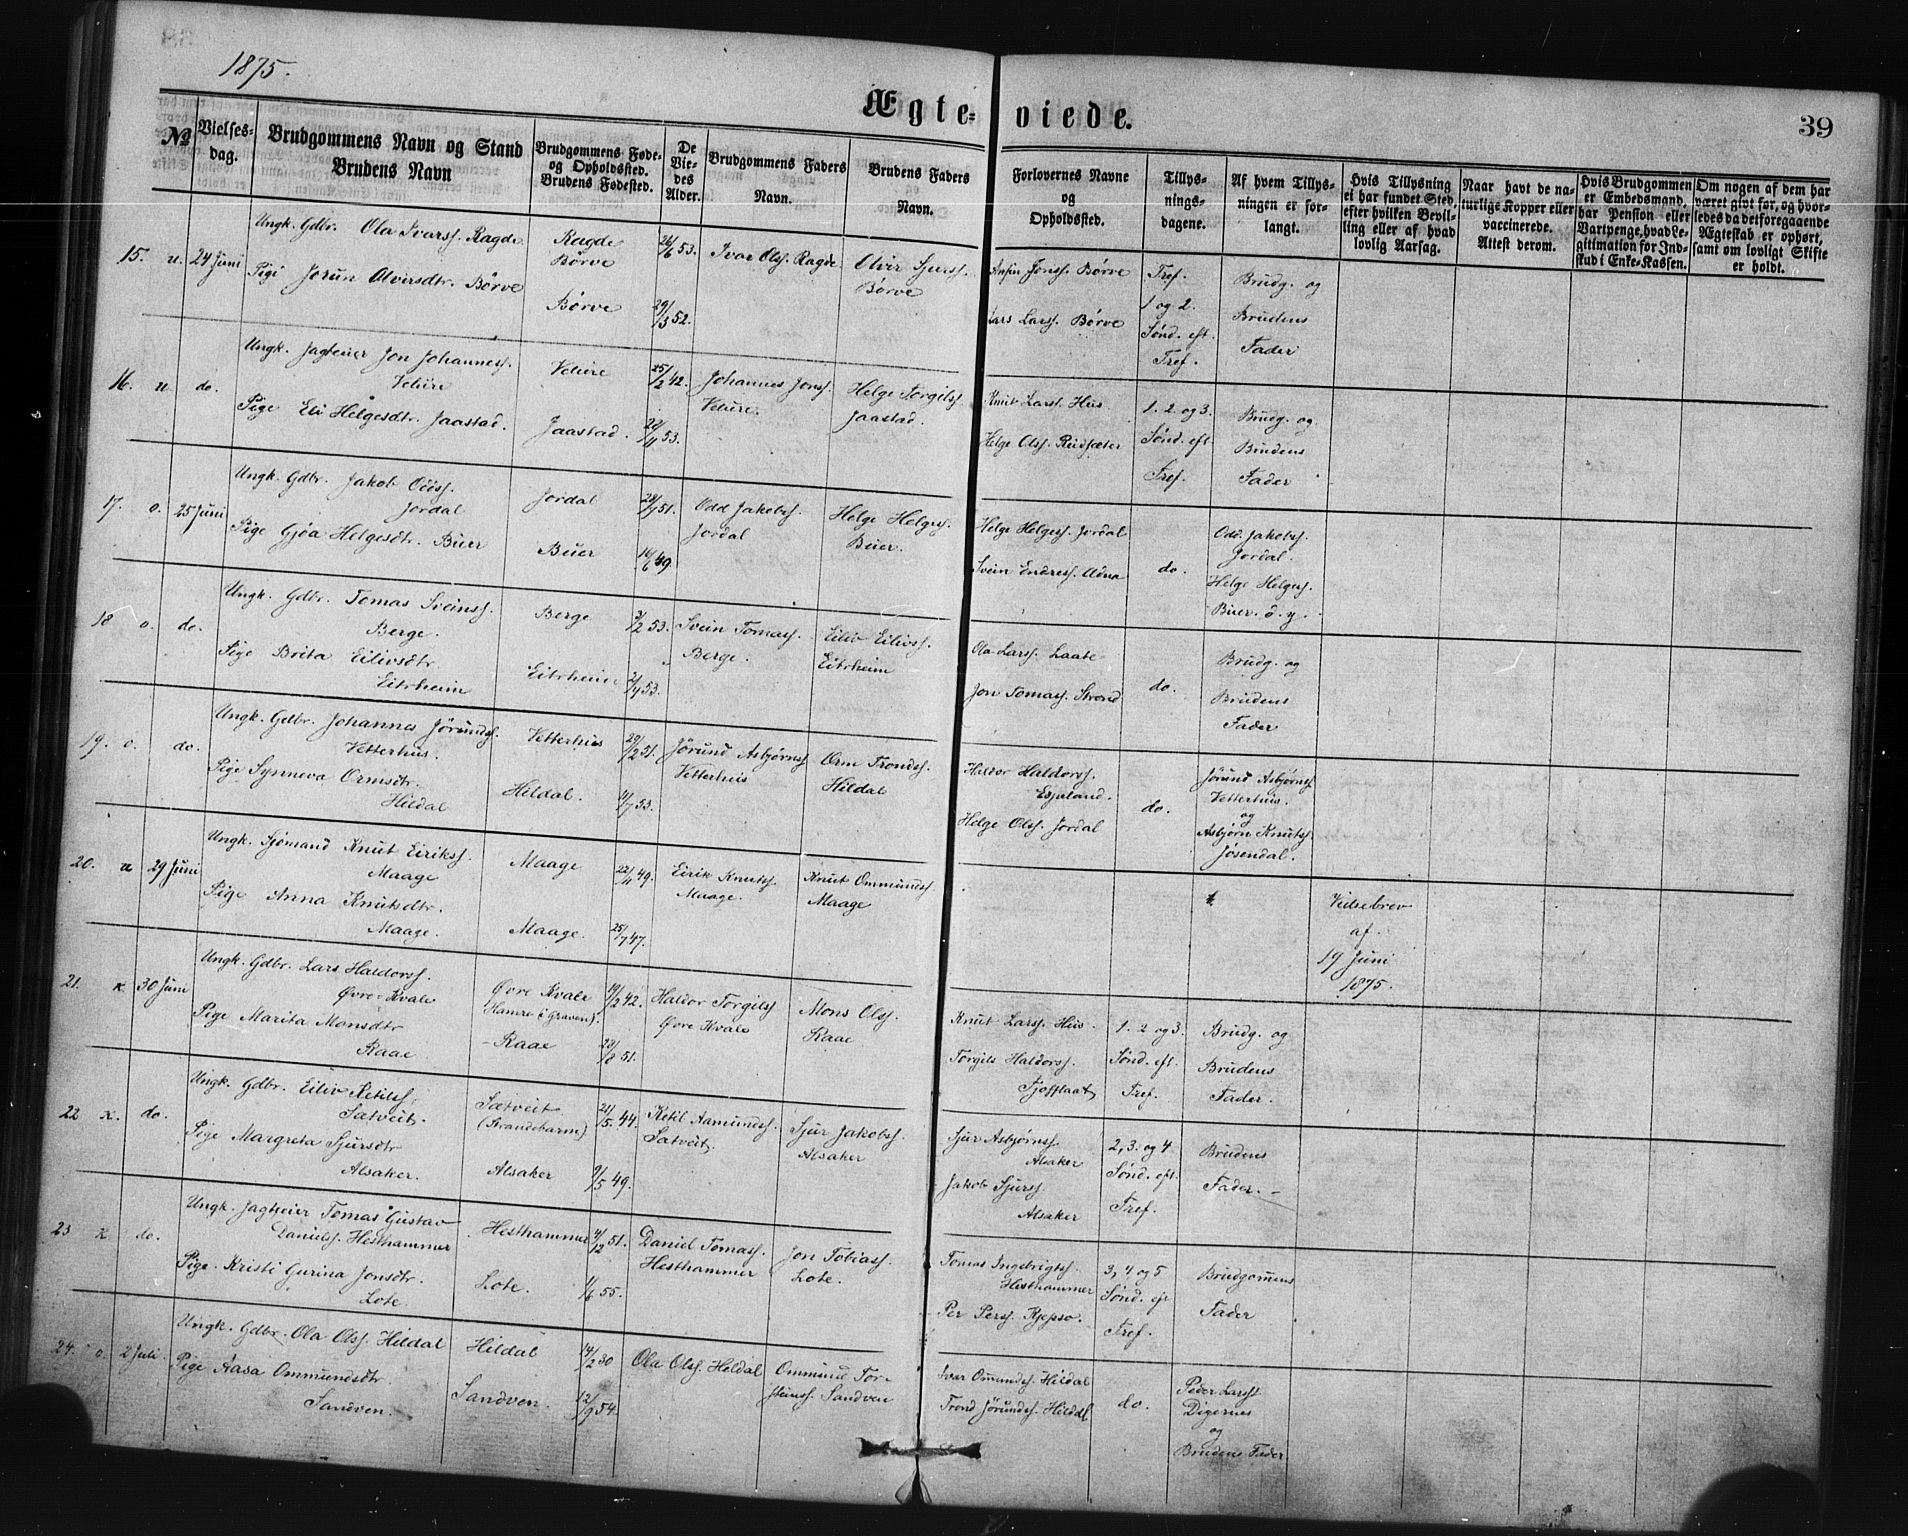 1875.
Ægte=viede.
39
№
Vielses-dag.
Brudgommens Navn og Stand
Brudens Navn
Brudgommens Føde- og Opholdssted.
Brudens Fødested.
De Vie-des Alder.
Brudgommens Faders Navn.
Brudens Faders Navn.
Forlovernes Navne og Opholdssted.
Tillys-nings-dagene.
Af hvem Tillys-ningen er for-langt.
Hvis Tillysning ei har fundet Sted, efter hvilken Bevil-ling eller af hvad lovlig Aarsag.
Naar havt de na-turlige Kopper eller vaccinerede. Attest derom.
Hvis Brudgommen er Embedsmand, har Pension eller Vartpenge, hvad Le-gitimation for Ind-skud i Enke-Kassen.
Om nogen af dem har været givt før, og hvor-ledes da det foregaaende Ægteskab er ophørt, samt om lovligt Skifte er holdt.
15. u. 24 Juni
Ungk. Gdbr. Ola Ivarss. Ragde
Pige Jorun Olvirsdtr. Børve
Ragde
Børve
Børve
26/6 53.
29/3 52.
Ivar Olss. Ragde
Olvir Sjurss.
Børve
Anfin Jonss. Børve
Lars Larss. Børve
Tref.
1 og 2.
Sønd. eft.
Tref.
Brudg. og
Brudens
Fader
16. u do.
Ungk. Jagteier Jon Johanness.
Velure
Pige Eli Helgesdtr. Jaastad.
Velure
Jaastad.
25/2 42.
28/11 53.
Johannes Jonss.
Velure.
Helge Torgilss.
Jaastad.
Knut Larss. Hus
Helge Olss. Rudsæter
1. 2 og 3.
Sønd. eft
Tref.
Brudg. og
Brudens
Fader
17. o. 25 Juni
Ungk. Gdbr. Jakob Odds.
Jordal
Pige Gjøa Helgesdtr. Buer
Jordal
Buer
51.
49.
Odd Jakobss.
Jordal
Helge Helgess.
Buer.
Helge Helgess. Jordal
Svein Endress. Adna
do.
Odd. Jakobss.
Jordal.
Helge Helgess.
Buer. d. y.
18 o. do.
Ungk. Gdbr. Tomas Sveinss.
Berge.
Pige Brita Eilivsdtr
Eitrheim
Berge
Eitrheim
53.
53.
Svein Tomass.
Berge.
Eiliv Eilivss.
Eitrheim
Ola Larss. Laate
Jon Tomass. Strand
do.
Brudg. og
Brudens
Fader
19. o. do.
Ungk. Gdbr. Johannes Jørundss.
Vetterhus.
Pige Synneva Ormsdtr.
Hildal
Vetterhus
Hildal.
29/2 31.
53.
Jørund Asbjørnss
Vetterhus
Orm Tronds.
Hildal
Haldor Haldorss.
Espeland.
Helge Olss. Jordal
do.
Jørund Asbjørnss.
Vetterhus.
og
Asbjørn Knutss.
Jøsendal.
20. u 29 Juni
Ungk. Sjømand Knut Eirikss.
Maage
Pige Anna Knutsdtr.
Maage.
Maage
Maage.
22/11 49.
25/7 47.
Eirik Knutss.
Maage.
Knut Ommundss
Maage
Vielsebrev
af.
19 Juni
1875.
21. K 30 Juni
Ungk. Gdbr. Lars Haldorss.
Øvre-Kvale
Pige Marita Monsdtr
Raae
Øvre Kvale
(Hamre i Graven).
Raae
14/2 42.
28/8 51.
Haldor Torgilss
Øvre Kvale
Mons Olss.
Raae
Knut Larss. Hus.
Torgils Haldorss.
Tjoflaat
1. 2 og 3.
Sønd. eft.
Tref.
Brudg. og
Brudens
Fader.
22 K. do.
Ungk. Gdbr. Eiliv Ketilss.
Sætveit.
Pige Margreta Sjursdtr
Alsaker.
Sætveit
(Strandebarm)
Alsaker
21/5 44.
9/5 49.
Ketil Aamundss.
Sætveit.
Sjur Jakobss.
Alsaker
Sjur Asbjørnss.
Alsaker
Jakob Sjurss.
Alsaker
2, 3. og 4
Sønd. eft.
Tref.
Brudens
Fader. -
23 K. do.
Ungk. Jagteier Tomas Gustav
Danielss. Hesthammer
Pige Kristi Gurina Jonsdtr.
Lote.
Hesthammer
Lote.
4/12 51.
1/6 55.
Daniel Tomass.
Hesthammer
Jon Tobiass.
Lote.
Tomas Ingebrigtss.
Hesthammer
Per Perss. Kjepso.
3, 4 og 5
Sønd. eft
Tref.
Brudgomens
Fader
24. o. 2 Juli.
Ungk. Gdbr. Ola Olss. Hildal
Pige Aasa Ommundsdtr.
Sandven.
Hildal
Sandven.
14/2 30
12/9 54.
Ola Olss. Hildal
Ommund Tor-
steinss. Sandven
Ivar Omundss. Hildal
Trond Jørundss. Hildal
do.
Peder Larss
Digernes
og
Brudens Fader